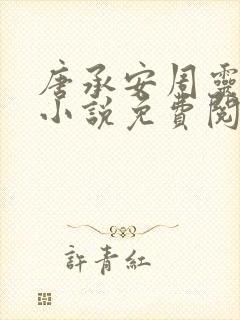 唐承安周靈
小説免費閱
許青紅